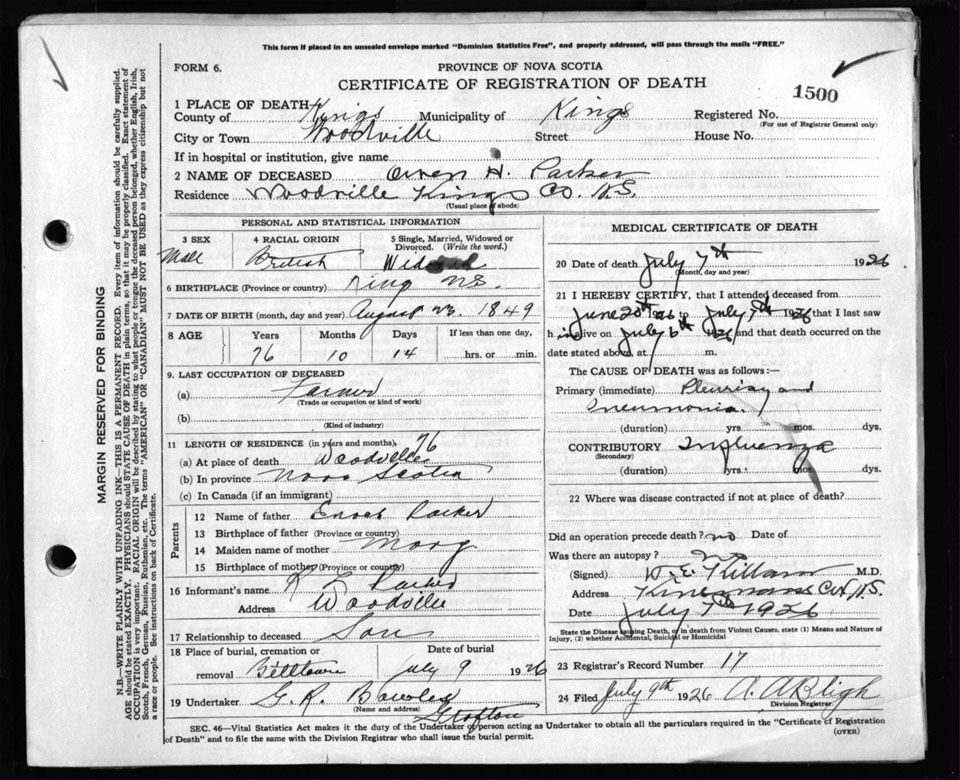 This form if placed in an unsealed envelope marked "Dominion Statistics Free", and properly addressed, will pass through the mails "FREE."
FORM 6.
PROVINCE OF NOVA SCOTIA
CERTIFICATE OF REGISTRATION OF DEATH
1500
1 PLACE OF DEATH
County of Kings Municipality of Kings Registered No.
(For use of Registrar General only)
City or Town Woodville Street House No.
If in hospital or institution, give name
2 NAME OF DECEASED Owen H. Parker
Residence Woodville Kings Co. N.S.
(Usual place of abode)
PERSONAL AND STATISTICAL INFORMATION
3 SEX 4 RACIAL ORIGIN 5 Single, Married, Widowed or Divorced. (Write the word.)
Male British
6 BIRTHPLACE (Province or country) King NS.
7 DATE OF BIRTH (month, day and year) August 23. 1849
8 AGE Years Months Days If less than one day,
76 10 14 hrs. or min.
9. LAST OCCUPATION OF DECEASED
(a) Farmer
(Trade or occupation or kind of work)
(b)
(Kind of industry)
11 LENGTH OF RESIDENCE (in years and months) 76
(a) At place of death Woodville
(b) In province Nova Scotia
(c) In Canada (if an immigrant)
Parents
12 Name of father Enoch Parker
13 Birthplace of father (Province or country)
14 Maiden name of mother
15 Birthplace of mother (Province or country)
16 Informant's name Parker
Address Woodville
17 Relationship to deceased Son
18 Place of burial, cremation or removal Billtown Date of burial July 9 1926
19 Undertaker G. R. Bowles
(Name and address) Grafton
MEDICAL CERTIFICATE OF DEATH
20 Date of death July 7th 1926
(Month, day and year)
21 I HEREBY CERTIFY, that I attended deceased from
June 20th 1926 to July 7th 1926 that I last saw
h im alive on July 6th 1926 and that death occurred on the
date stated above, at m.
The CAUSE OF DEATH was as follows:—
Primary (immediate) Pleurisy and
Pneumonia.
(duration) yrs mos. dys.
CONTRIBUTORY Influenza
(Secondary)
(duration) yrs. mos. dys.
22 Where was disease contracted if not at place of death?
Did an operation precede death? no Date of
Was there an autopsy? no
(Signed) M.D.
Address N.S.
Date July 7th 1926
State the Disease causing Death, or in death from Violent Causes, state (1) Means and Nature of
Injury, (2) whether Accidental, Suicidal or Homicidal
23 Registrar's Record Number 17
24 Filed July 9th 1926 A. A Bligh
Division Registrar
SEC. 46—Vital Statistics Act makes it the duty of the Undertaker or person acting as Undertaker to obtain all the particulars required in the "Certificate of Registration
of Death" and to file the same with the Division Registrar who shall issue the burial permit.
(OVER)
MARGIN RESERVED FOR BINDING
N.B.—WRITE PLAINLY WITH UNFADING INK—THIS IS A PERMANENT RECORD. Every item of information should be carefully supplied.
AGE should be stated EXACTLY. PHYSICIANS should STATE CAUSE OF DEATH in plain terms, so that it may be properly classified. Exact statement of
OCCUPATION is very important. RACIAL ORIGIN will be described by stating to what people or tongue the deceased person belonged, whether English, Irish,
Scotch, French, German, Russian, Ruthenian, etc. The terms "AMERICAN" OR "CANADIAN" MUST NOT BE USED as they express citizenship but not
a race or people. See instructions on back of Certificate.